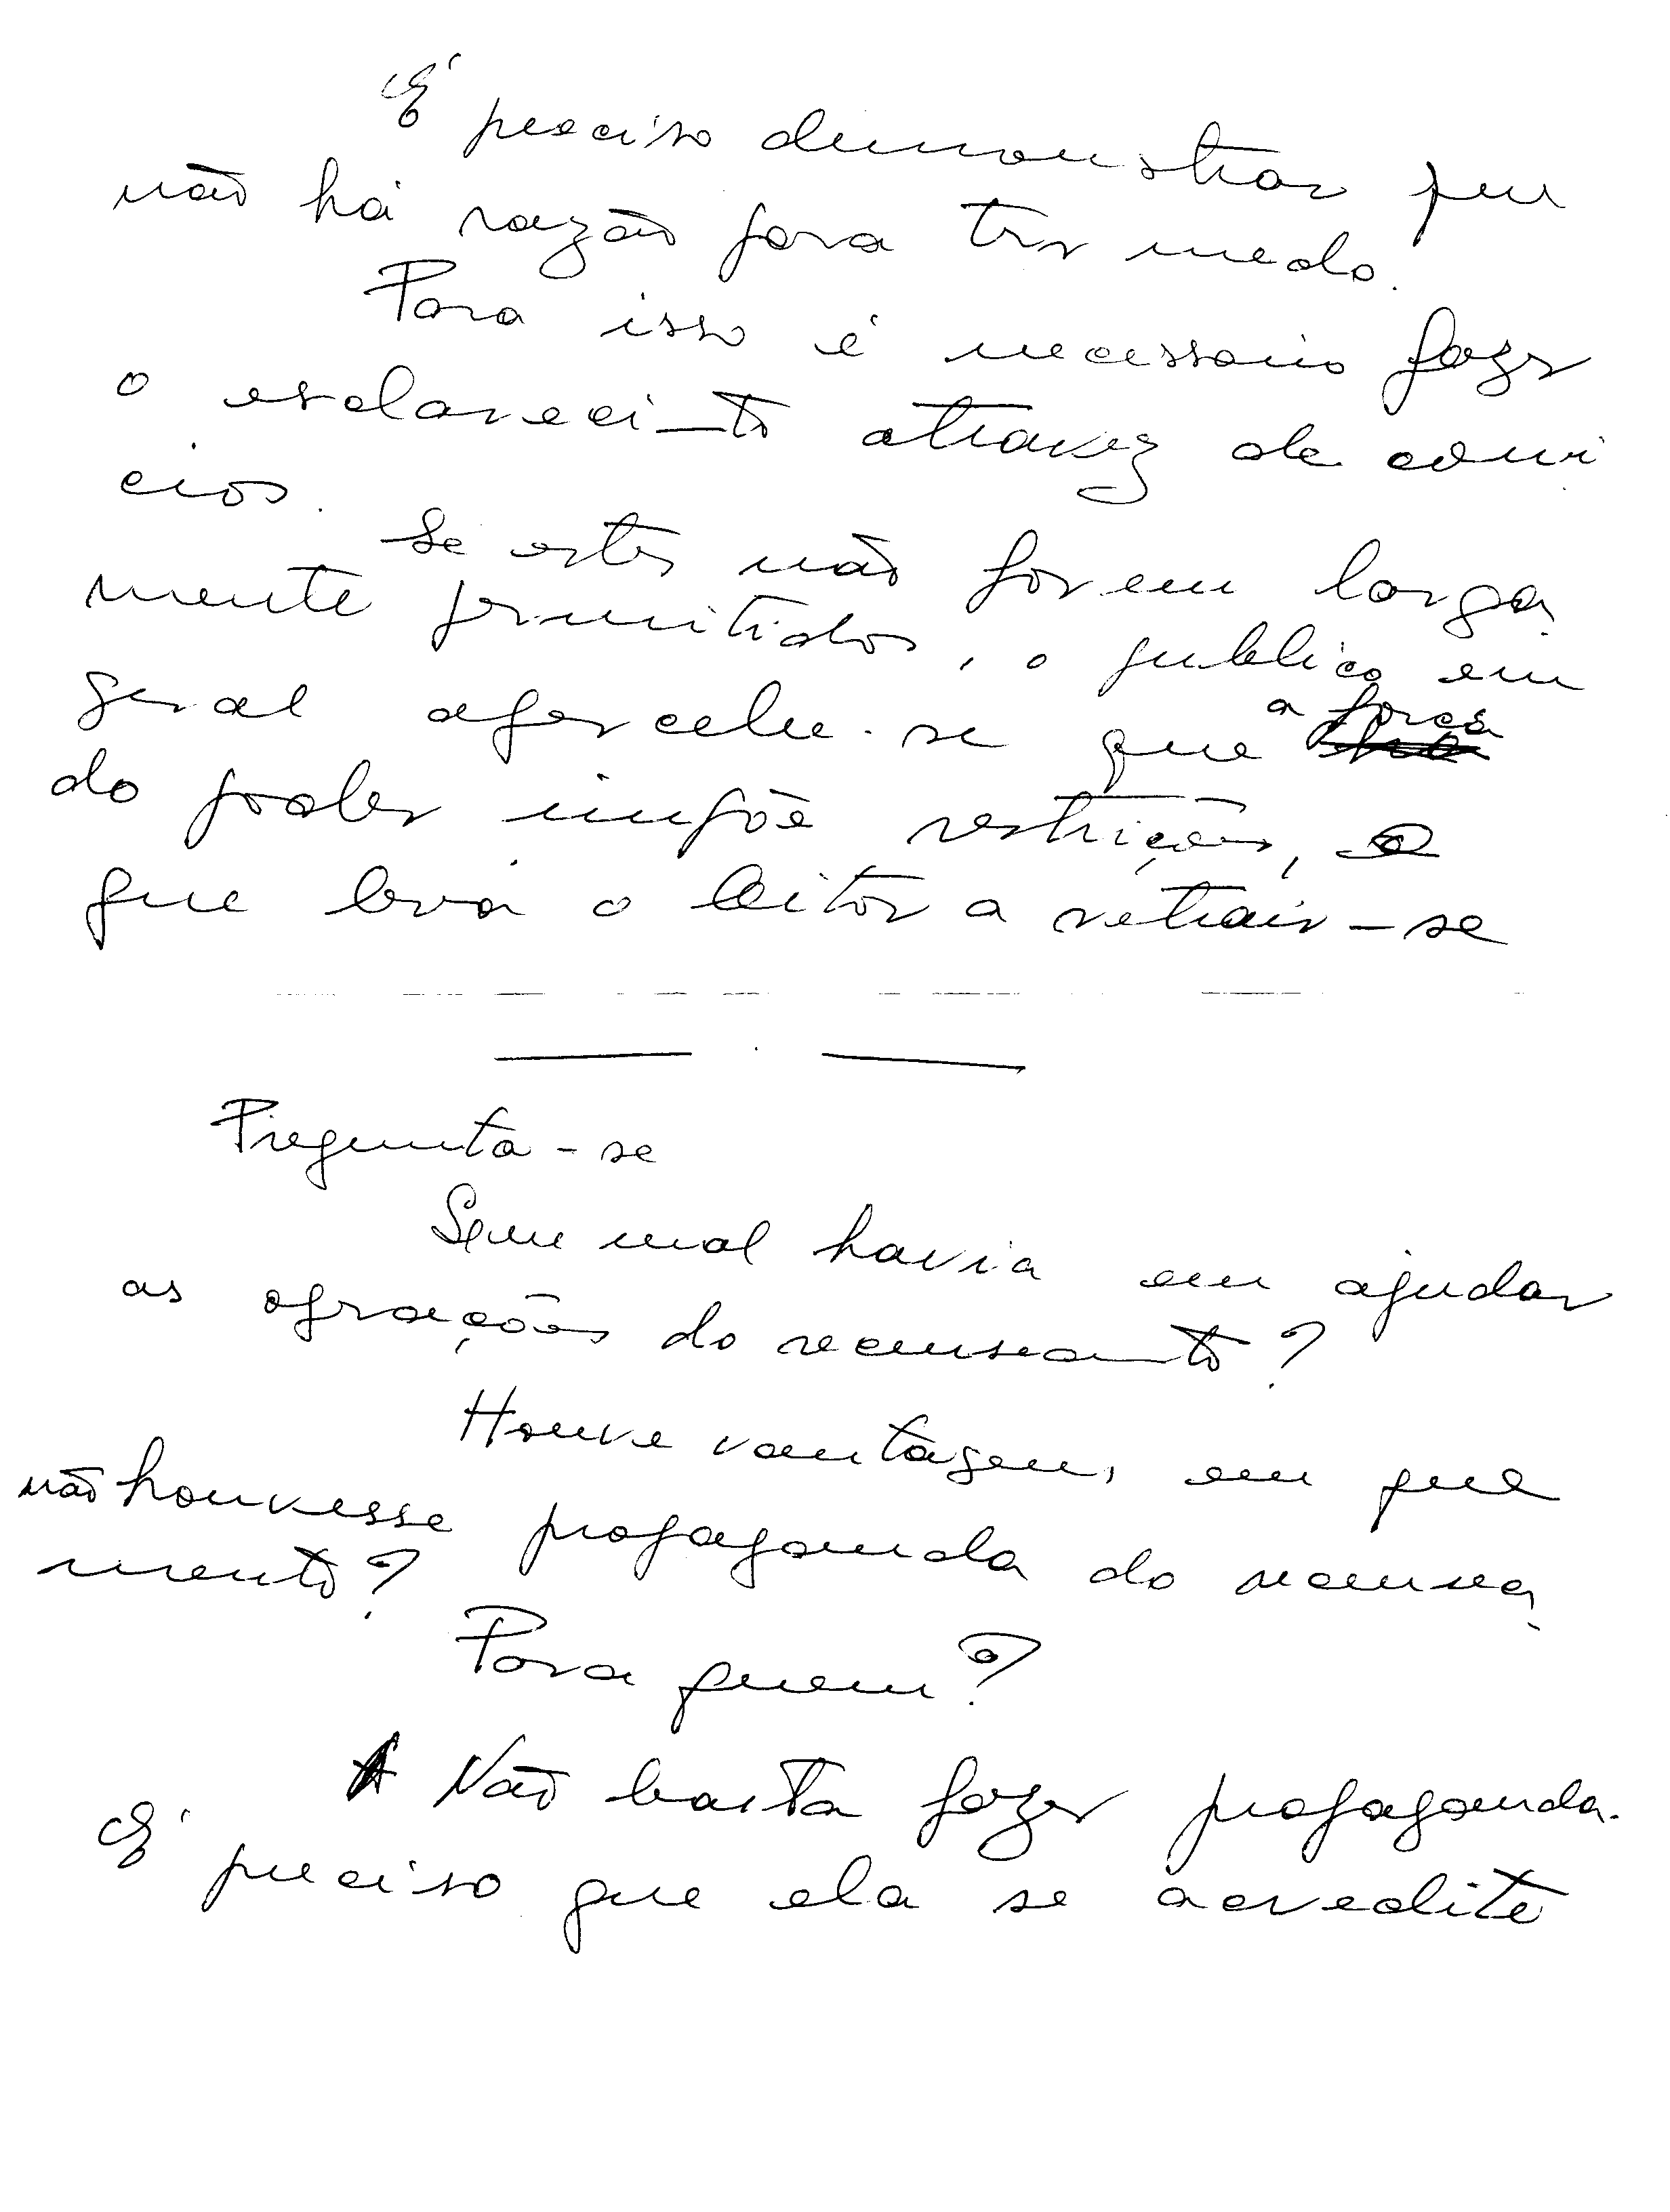 É preciso demonstrar que
não há razão para ter medo.
Para isso é necessario fazer
o esclareci—to atravez de comi
cios.
Se estes não forem larga-
mente permitidos, o publico em
geral apercebe-se que a força
do poder impõe restrições, o
que leva o leitor a retrair-se
Pregunta-se
Que mal havia em ajudar
as operações do recensea—to?
Houve vantagem, em que
não houvesse propaganda do recensea-
mento?
Para quem?
Não basta fazer propaganda.
É preciso que ela se acredite